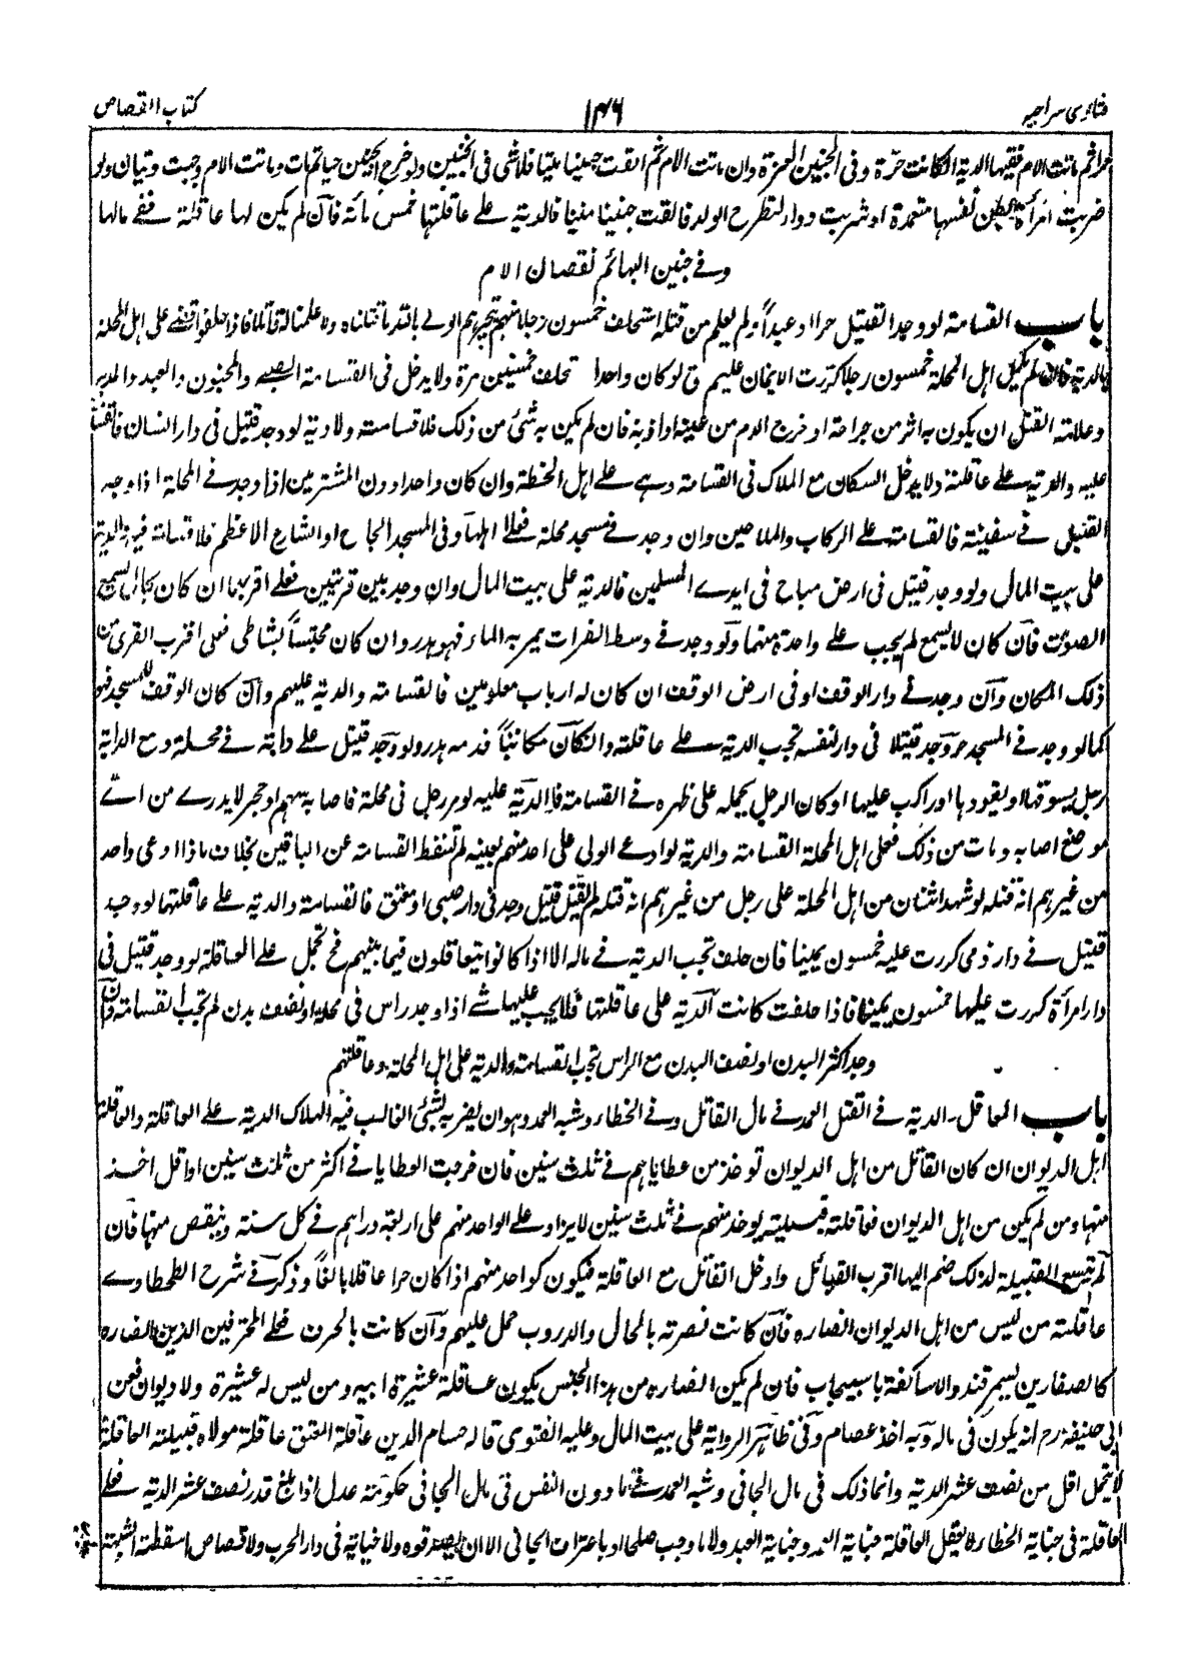 فتاوى سراجيه
١٣٦
كتاب القصاص
ثم ماتت الام ففيها الدية ان كانت حرّة وفى الجنين الغرة وان ماتت الام ثم القت جنينا ميتا فلا شى فى الجنين ولو خرج الجنين حيا ثم مات وماتت الام وجبت ديتان ولو
ضربت امرأة بطن نفسها متعمدة او شربت دوار لتطرح الولد فالقت جنينا ميتا فالدية على عاقلتها خمس مائة فان لم يكن لها عاقلة ففى مالها
وفى جنين البهائم نقصان الام
باب القسامة لو وجد القتيل حرا او عبداً ولم يعلم من قتله استحلف خمسون رجلا منهم يتخيرهم الولى بالله ما قتلناه ولا علمنا له قاتلا فاذا حلفوا قضى على اهل المحلة
بالدية فان لم يكمل اهل المحلة خمسون رجلا كررت الايمان عليهم ولو كان واحدا تحلف خمسين مرة ولا يدخل فى القسامة الصبى والمجنون والعبد والمدبر
وعلامة القتل ان يكون به اثر من جراحة او خرج الدم من عينه او اذنه فان لم يكن به شئ من ذلك فلا قسامة ولا دية لو وجد قتيل فى دار انسان فالقسامة
عليه والدية على عاقلته ولا يدخل السكان مع الملاك فى القسامة وهى على اهل الخطة وان كان واحدا دون المشترين اذا وجد فى المحلة اذا وجد
القتيل فى سفينة فالقسامة على الركاب والملاحين وان وجد فى مسجد محلة فعلى اهلها وفى المسجد الجامع او الشارع الاعظم فلا قسامة فيه والدية
على بيت المال ولو وجد قتيل فى ارض مباح فى ايدى المسلمين فالدية على بيت المال وان وجد بين قريتين فعلى اقربهما ان كان بحال يسمع
الصوت فان كان لا يسمع لم يجب على واحدة منهما ولو وجد فى وسط الفرات يمر به الماء فهو هدر وان كان محتبساً بشاطى فعلى اقرب القرى من
ذلك المكان وان وجد فى دار الوقف او فى ارض الوقف ان كان له ارباب معلومين فالقسامة والدية عليهم وان كان الوقف للمسجد فهو
كما لو وجد فى المسجد حر وجد قتيلا فى دار نفسه تجب الدية على عاقلته وان كان مكاتباً فدمه هدر ولو وجد قتيل على دابة فى محلة ومع الدابة
رجل يسوقها او يقودها او راكب عليها او كان الرجل يحمله على ظهره فى القسامة فالدية عليه لو مر رجل فى محلة فاصابه سهم او حجر لا يدرى من اى
موضع اصابه ومات من ذلك فعلى اهل المحلة القسامة والدية لو ادعى الولى على احد منهم بعينه لم تسقط القسامة عن الباقين بخلاف ما اذا ادعى واحد
من غيرهم انه قتله لو شهد اثنان من اهل المحلة على رجل من غيرهم انه قتله لم يقبل قتيل وجد فى دار صبى او معتق فالقسامة والدية على عاقلتها لو وجد
قتيل فى دار ذمى كررت عليه خمسون يمينا فان حلف تجب الدية فى ماله الا اذا كانوا يتعاقلون فيما بينهم فح تحمل على العاقلة لو وجد قتيل فى
دار امرأة كررت عليها خمسون يمينا فاذا حلفت كانت الدية على عاقلتها فلا يجب عليها شى اذا وجد راس فى محلة او نصف بدن لم تجب القسامة وان
وجد اكثر البدن او نصف البدن مع الراس تجب القسامة والدية على اهل المحلة وعاقلتهم
باب المعاقل ـ الدية فى القتل العمد فى مال القاتل وفى الخطاء وشبه العمد وهو ان يضربه بشئ الغالب فيه الهلاك الدية على العاقلة والعاقلة
اهل الديوان ان كان القاتل من اهل الديوان توخذ من عطاياهم فى ثلث سنين فان خرجت العطايا فى اكثر من ثلث سنين او اقل اخذ
منها ومن لم يكن من اهل الديوان فعاقلته قبيلته يوخذ منهم فى ثلث سنين لا يزاد على الواحد منهم على اربعة دراهم فى كل سنة وينقص منها فان
لم تتسع القبيلة لذلك ضم اليها اقرب القبائل وادخل القاتل مع العاقلة فيكون كواحد منهم اذا كان حرا عاقلا بالغاً وذكر فى شرح الطحطاوى
عاقلته من ليس من اهل الديوان انصاره فان كانت نصرته بالمحال والدروب حمل عليهم وان كانت بالحرف فعلى المحترفين الذين انصاره
كالصفارين بسمرقند والاساكفة باسبيجاب فان لم يكن انصاره من هذا الجنس يكون عاقلة عشيرة ابيه ومن ليس له عشيرة ولا ديوان فعن
ابى حنيفة رح انه يكون فى ماله وبه اخذ عصام وفى ظاهر الرواية على بيت المال وعليه الفتوى قاله حسام الدين عاقلة المعتق عاقلة مولاه قبيلته العاقلة
لا يتحمل اقل من نصف عشر الدية وانما ذلك فى مال الجانى وشبه العمد فى ما دون النفس فى مال الجانى حكومة عدل اذا بلغ قدر نصف عشر الدية فعلى
العاقلة فى جناية الخطاء لا يعقل العاقلة جناية العمد وجناية العبد ولا ما وجب صلحا او باعتراف الجانى الا ان يصدقوه ولا جناية فى دار الحرب ولا قصاص اسقطته الشبهة